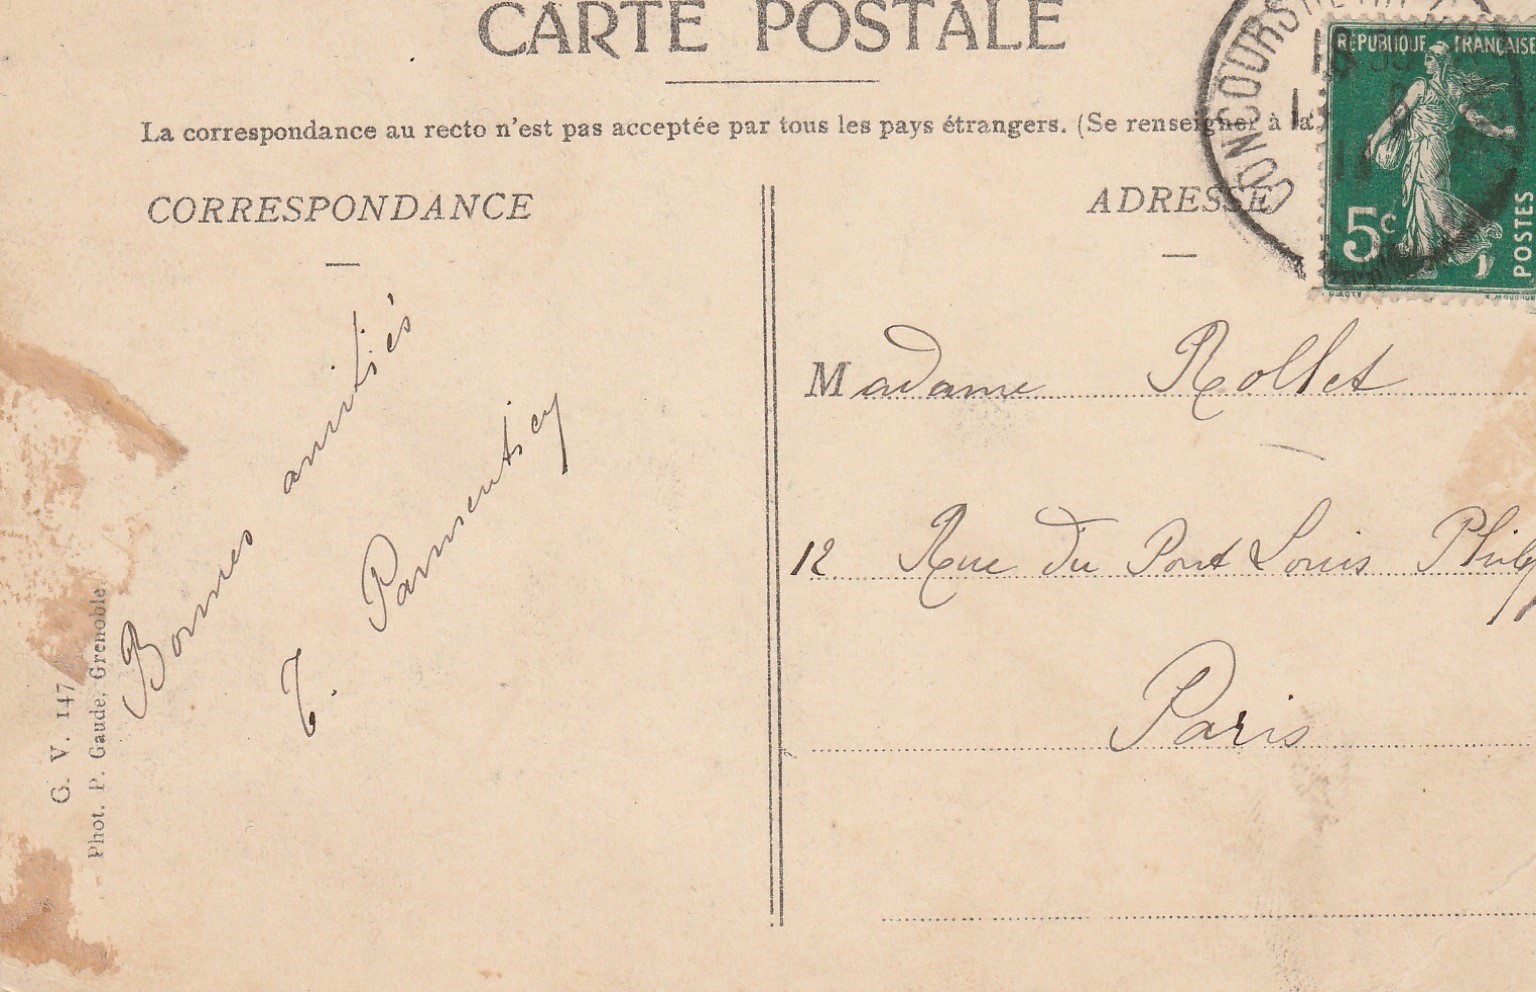 CARTE POSTALE
La correspondance au recto n'est pas acceptée par tous les pays étrangers. (Se renseigner à la
CORRESPONDANCE
Bonnes amitiés
T. Parmentier
G. V. 147
Phot. P. Gaude, Grenoble
CONCOURS
RÉPUBLIQUE FRANÇAISE
5c
POSTES
ADRESSE
Madame Rollet
12 Rue du Pont Louis Philip
Paris